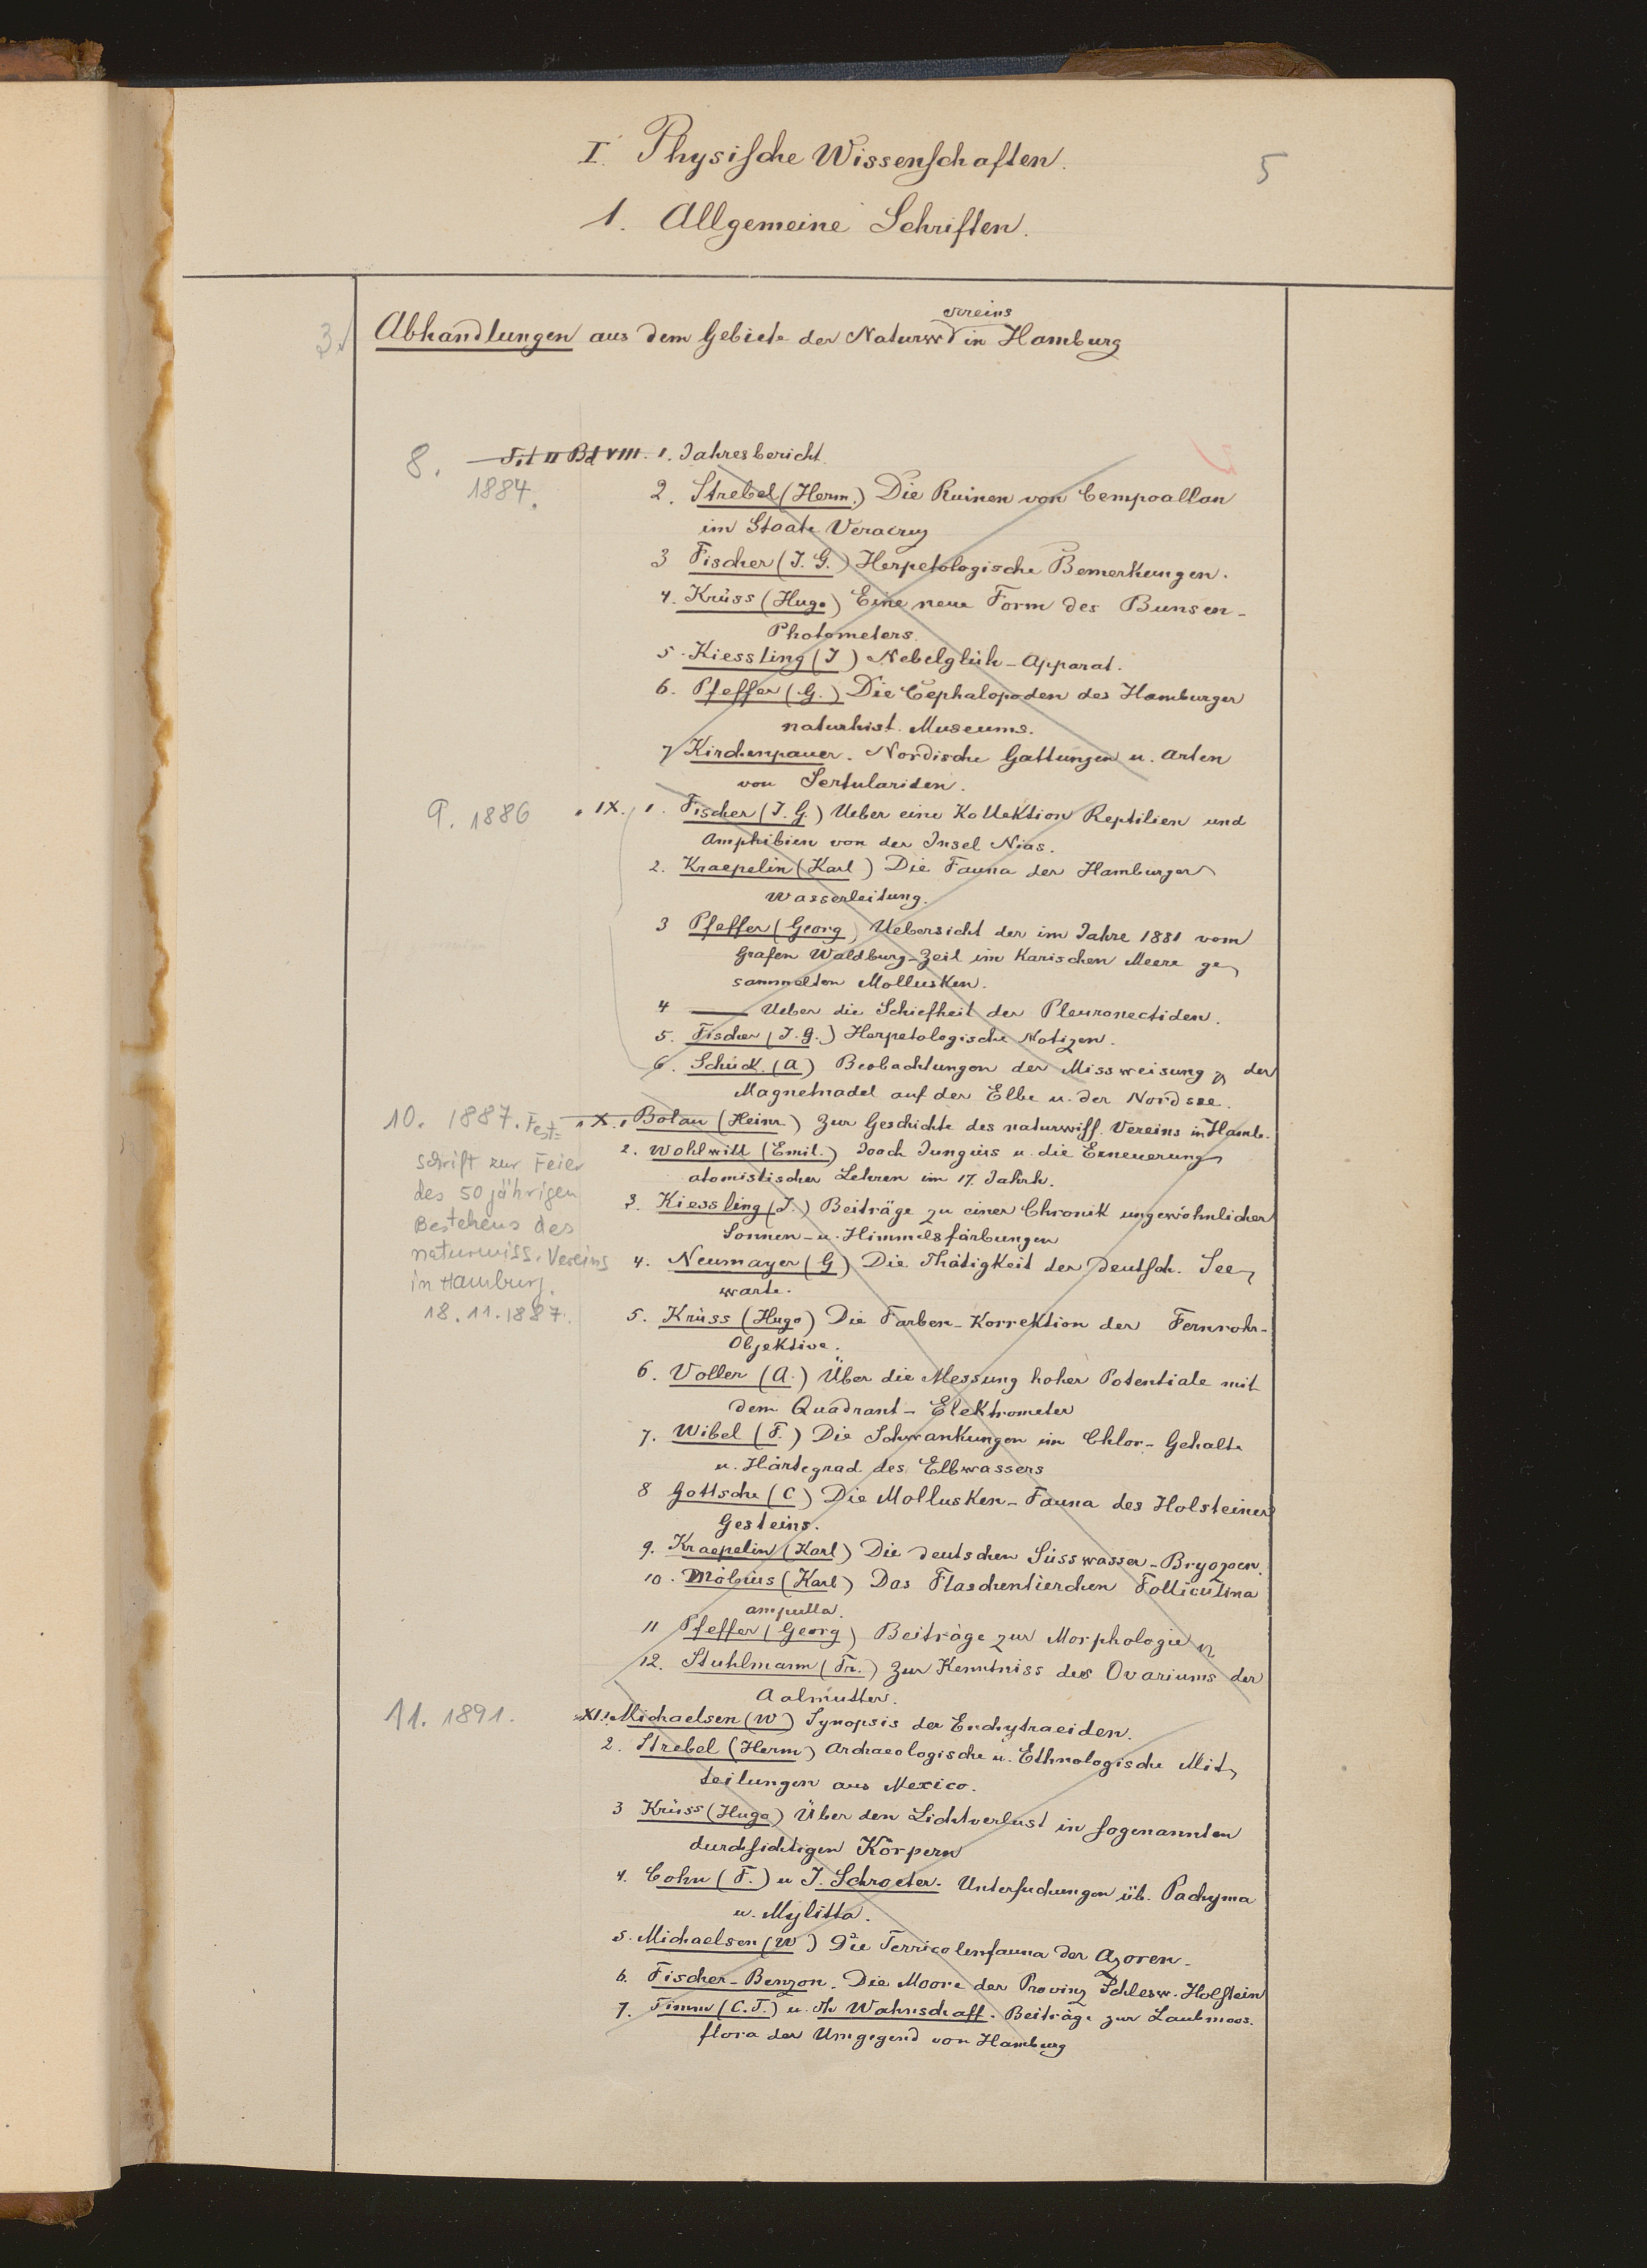 I. Physische Wissenschaften.
5
1. Allgemeine Schriften.
vereins
3. Abhandlungen aus dem Gebiete der Naturw in Hamburg
8. Bd VIII. 1. Jahresbericht
1884.
2. Strebel (Herm.) Die Ruinen von Cempoallan
im Staate Veracruz
3 Fischer (J. G.) Herpetologische Bemerkungen.
4. Krüss (Hugo) Eine neue Form des Bunsen-
Photometers.
5. Kiessling (J) Nebelglüh-Apparat.
6. Pfeffer (G.) Die Cephalopoden des Hamburger
naturhist. Museums.
7 Kirchenpauer. Nordische Gattungen u. Arten
von Sertulariden.
9. 1886 „ IX. 1. Fischer (J. G.) Ueber eine Kollektion Reptilien und
Amphibien von der Insel Nias.
2. Kraepelin (Karl) Die Fauna der Hamburger
Wasserleitung.
3 Pfeffer (Georg) Uebersicht der im Jahre 1881 vom
Grafen Waldburg-Zeil im Karischen Meere ge-
sammelten Mollusken.
4 — Ueber die Schiefheit der Pleuronectiden.
5. Fischer (J. G.) Herpetologische Notizen.
6. Schück (A) Beobachtungen der Missweisung der
Magnetnadel auf der Elbe u. der Nordsee.
10. 1887. Fest= „ X. 1 Bolau (Heinr) Zur Geschichte des naturwiss. Vereins in Hamb.
schrift zur Feier
des 50 jährigen
Bestehens des
naturwiss. Vereins
in Hamburg.
18. 11. 1887.
2. Wohlwill (Emil.) Joach Jungius u. die Erneuerung
atomistischer Lehren im 17. Jahrh.
3. Kiessling (J.) Beiträge zu einer Chronik ungewöhnlicher
Sonnen- u. Himmelsfärbungen
4. Neumayer (G) Die Thätigkeit der Deutsch. See-
warte.
5. Krüss (Hugo) Die Farben-Korrektion der Fernrohr-
Objektive.
6. Voller (A.) Über die Messung hoher Potentiale mit
dem Quadrant-Elektrometer
7. Wibel (F.) Die Schwankungen im Chlor-Gehalte
u. Härtegrad des Elbwassers
8 Gottsche (C) Die Mollusken-Fauna des Holsteiner
Gesteins.
9. Kraepelin (Karl) Die deutschen Süsswasser-Bryozoen.
10. Möbius (Karl) Das Flaschentierchen Folliculina
ampulla.
11 Pfeffer (Georg) Beiträge zur Morphologie
12. Stuhlmann (Fr.) Zur Kenntniss des Ovariums der
Aalmutter.
11. 1891. „ XI. 1. Michaelsen (W) Synopsis der Enchytraeiden.
2. Strebel (Herm) Archaeologische u. Ethnologische Mit-
teilungen aus Mexico.
3 Krüss (Hugo) Über den Lichtverlust in sogenannten
durchsichtigen Körpern
4. Cohn (F.) u J. Schroeter. Untersuchungen üb. Pachyma
u. Mylitta.
5. Michaelsen (W) Die Terricolenfauna der Azoren.
6. Fischer-Benzon. Die Moore der Provinz Schlesw. Holstein
7. Timm (C. T.) u. Th Wahnschaff. Beiträge zur Laubmoos.
flora der Umgegend von Hamburg